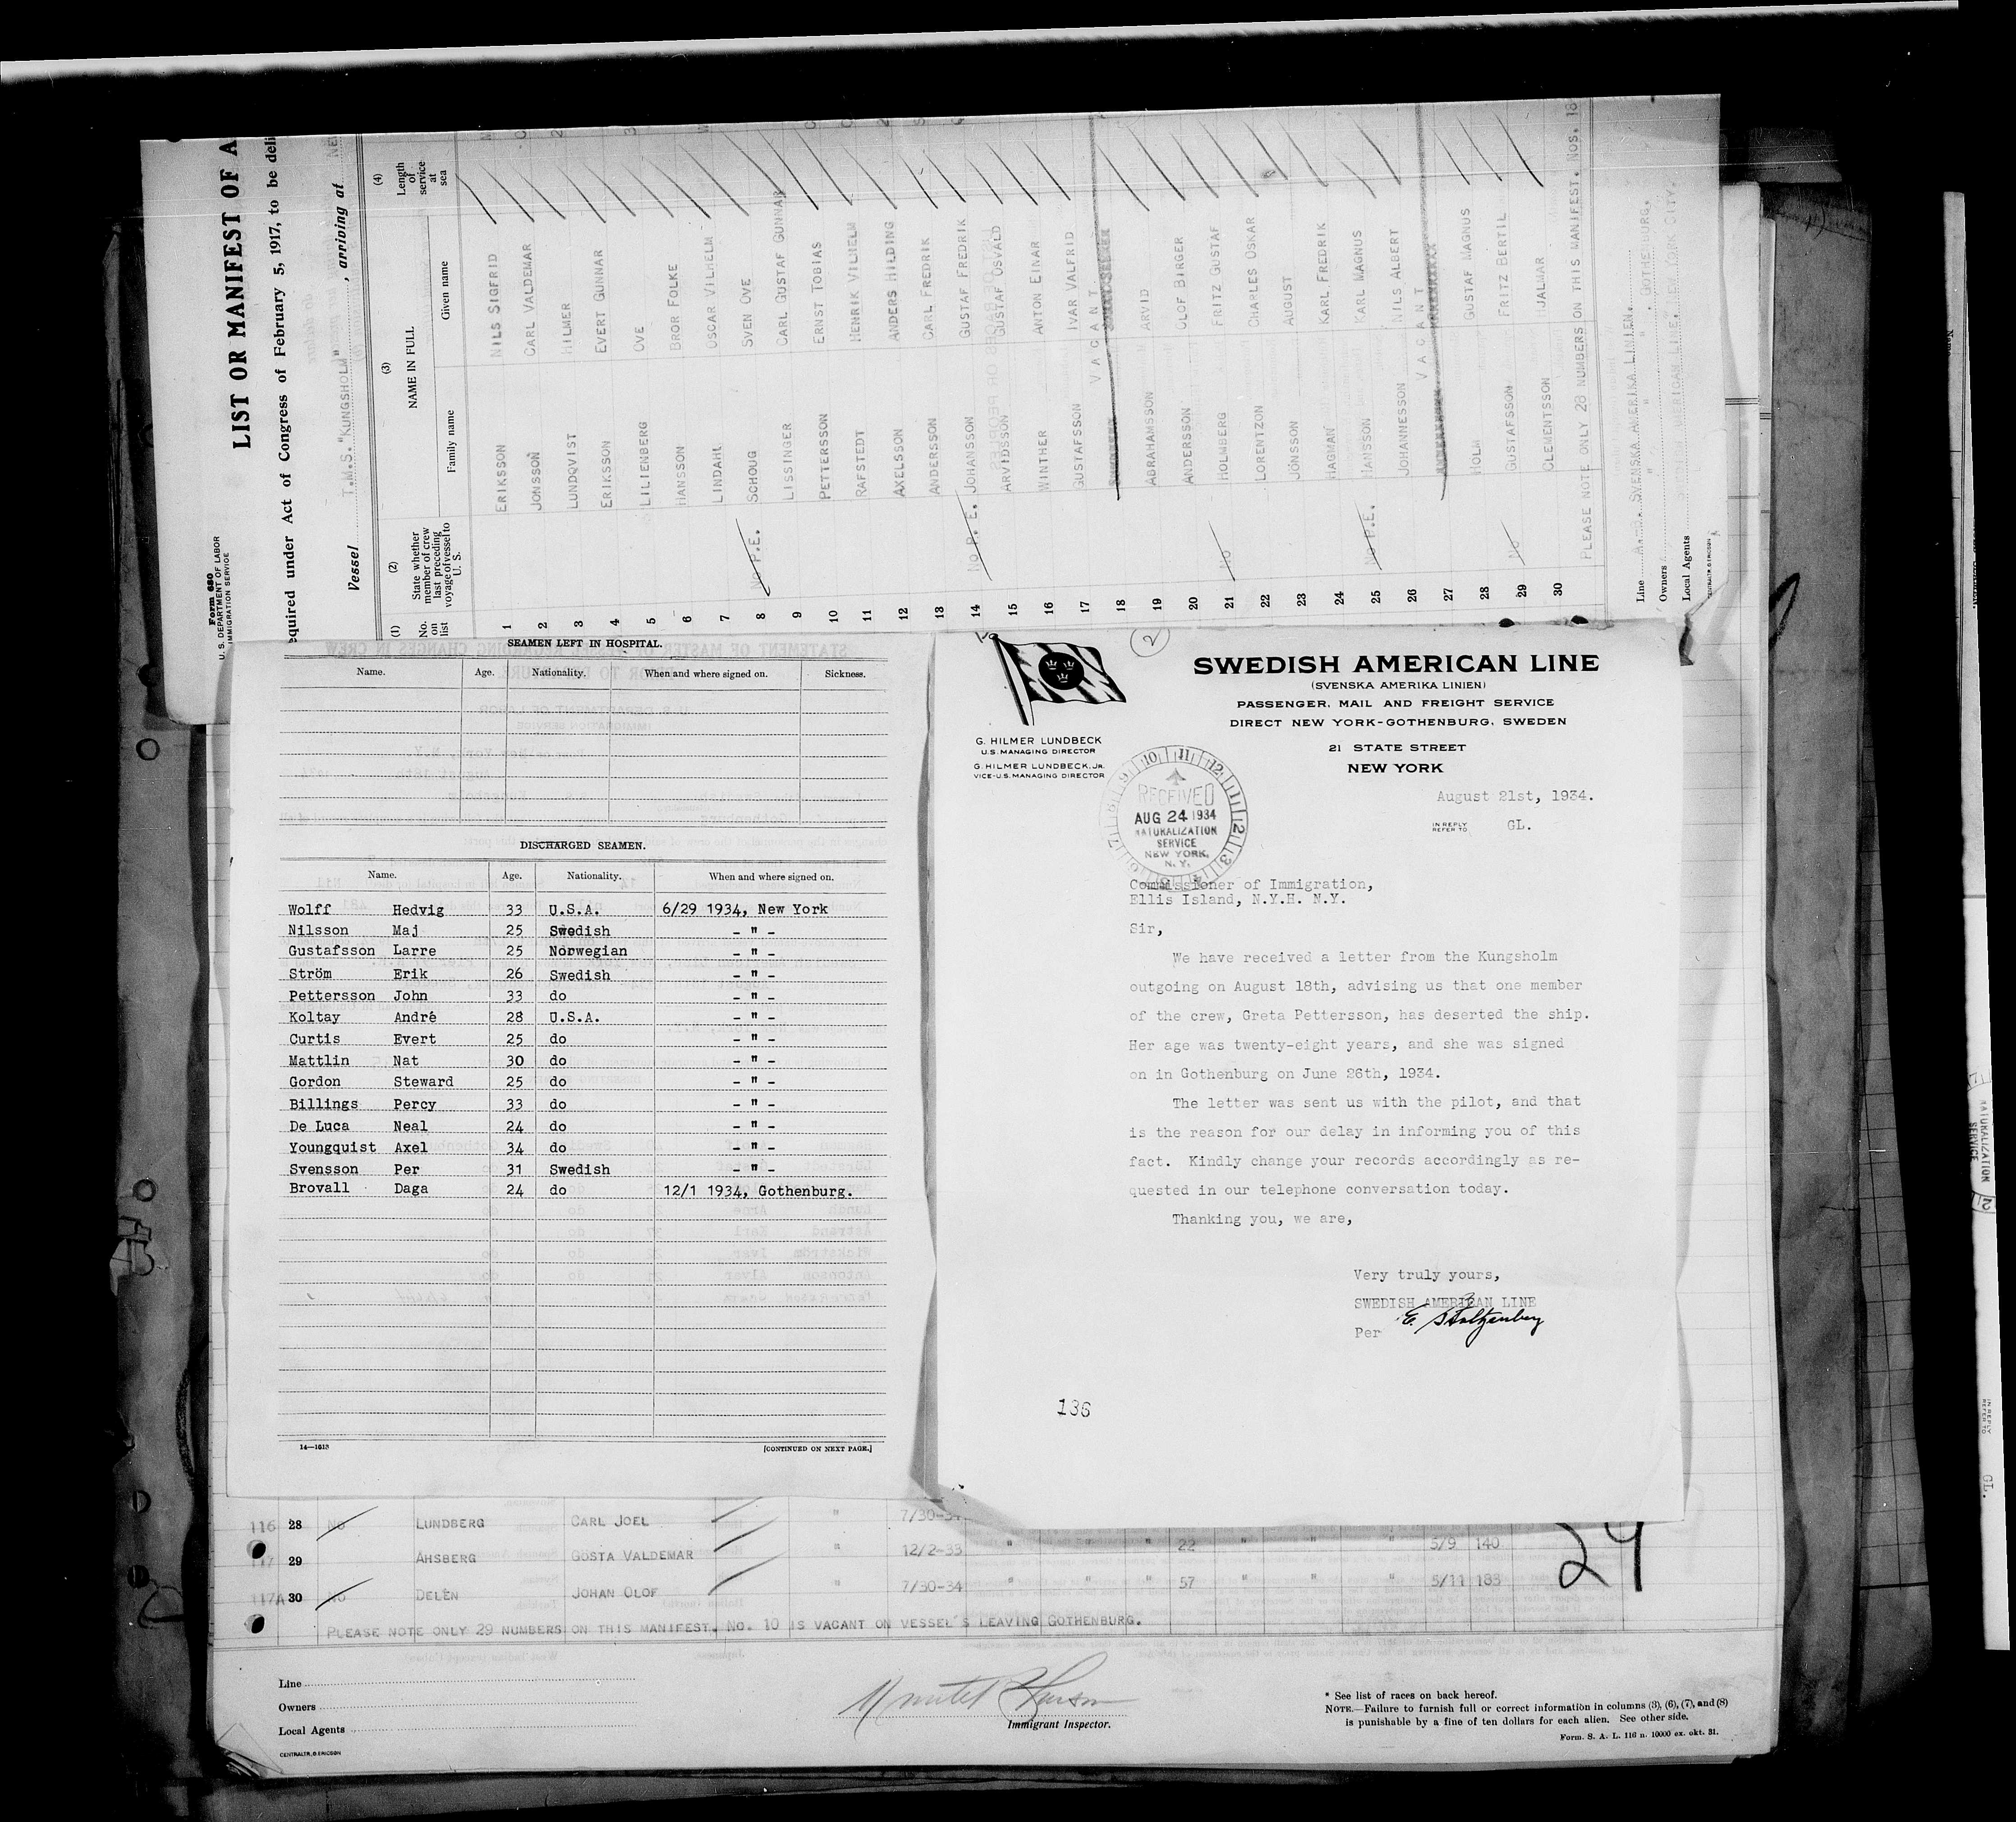 Form 680
U. S. DEPARTMENT OF LABOR
IMMIGRATION SERVICE
LIST OR MANIFEST OF A
equired under Act of Congress of February 5, 1917, to be deli
Vessel T.M.S. "KUNGSHOLM" , arriving at NE
(1) (2) (3) (4)
No. on list
State whether member of crew last preceding voyage of vessel to U. S.
NAME IN FULL
Family name Given name
Length of service at sea
1 ERIKSSON NILS SIGFRID
2 JONSSON CARL VALDEMAR
3 LUNDQVIST HILMER
4 ERIKSSON EVERT GUNNAR
5 LILIENBERG OVE
6 HANSSON BROR FOLKE
7 LINDAHL OSCAR VILHELM
8 No P.E. SCHOUG SVEN OVE
9 LISSINGER CARL GUSTAF GUNNAR
10 PETTERSSON ERNST TOBIAS
11 RAFSTEDT HENRIK VILHELM
12 AXELSSON ANDERS HILDING
13 ANDERSSON CARL FREDRIK
14 No P.E. JOHANSSON GUSTAF FREDRIK
15 ARVIDSSON GUSTAF OSVALD
16 WINTHER ANTON EINAR
17 GUSTAFSSON IVAR VALFRID
18 VACANT
19 ABRAHAMSSON ARVID
20 ANDERSSON OLOF BIRGER
21 No HOLMBERG FRITZ GUSTAF
22 LORENTZON CHARLES OSKAR
23 JÖNSSON AUGUST
24 HAGMAN KARL FREDRIK
25 No P.E. HANSSON KARL MAGNUS
26 JOHANNESSON NILS ALBERT
27 VACANT
28 HOLM GUSTAF MAGNUS
29 No GUSTAFSSON FRITZ BERTIL
30 CLEMENTSSON HJALMAR
PLEASE NOTE ONLY 28 NUMBERS ON THIS MANIFEST. NOS. 18
Line A.-B. SVENSKA AMERIKA LINIEN.
Owners " " " , GOTHEBURG.
Local Agents
SEAMEN LEFT IN HOSPITAL.
Name. Age. Nationality. When and where signed on. Sickness.
DISCHARGED SEAMEN.
Name. Age. Nationality. When and where signed on.
Wolff Hedvig 33 U.S.A. 6/29 1934, New York
Nilsson Maj 25 Swedish - " -
Gustafsson Larre 25 Norwegian - " -
Ström Erik 26 Swedish - " -
Pettersson John 33 do - " -
Koltay André 28 U.S.A. - " -
Curtis Evert 25 do - " -
Mattlin Nat 30 do - " -
Gordon Steward 25 do - " -
Billings Percy 33 do - " -
De Luca Neal 24 do - " -
Youngquist Axel 34 do - " -
Svensson Per 31 Swedish - " -
Brovall Daga 24 do 12/1 1934, Gothenburg.
14—1613 [CONTINUED ON NEXT PAGE.]
2
SWEDISH AMERICAN LINE
(SVENSKA AMERIKA LINIEN)
PASSENGER, MAIL AND FREIGHT SERVICE
DIRECT NEW YORK-GOTHENBURG, SWEDEN
21 STATE STREET
NEW YORK
G. HILMER LUNDBECK
U.S. MANAGING DIRECTOR
G. HILMER LUNDBECK, JR.
VICE-U.S. MANAGING DIRECTOR
RECEIVED
AUG 24 1934
NATURALIZATION
SERVICE
NEW YORK,
N. Y.
August 21st, 1934.
IN REPLY REFER TO GL.
Commissioner of Immigration,
Ellis Island, N.Y.H. N.Y.
Sir,
We have received a letter from the Kungsholm
outgoing on August 18th, advising us that one member
of the crew, Greta Pettersson, has deserted the ship.
Her age was twenty-eight years, and she was signed
on in Gothenburg on June 26th, 1934.
The letter was sent us with the pilot, and that
is the reason for our delay in informing you of this
fact. Kindly change your records accordingly as re-
quested in our telephone conversation today.
Thanking you, we are,
Very truly yours,
SWEDISH AMERICAN LINE
Per E. Stoltzenberg
136
116 28 No LUNDBERG CARL JOEL " 7/30-34
117 29 AHSBERG GÖSTA VALDEMAR " 12/2-33 " " " 22 " " " 5/9 140
117A 30 No DELÉN JOHAN OLOF " 7/30-34 " " " 57 " " " 5/11 183
24
PLEASE NOTE ONLY 29 NUMBERS ON THIS MANIFEST. NO. 10 IS VACANT ON VESSEL'S LEAVING GOTHENBURG.
Line
Owners
Local Agents
CENTRALTR, G. ERICSON
Immigrant Inspector.
* See list of races on back hereof.
NOTE.—Failure to furnish full or correct information in columns (3), (6), (7), and (8)
is punishable by a fine of ten dollars for each alien. See other side.
Form. S. A. L. 116 n. 10000 ex. okt. 31.
NATURALIZATION
SERVICE
IN REPLY REFER TO GL.